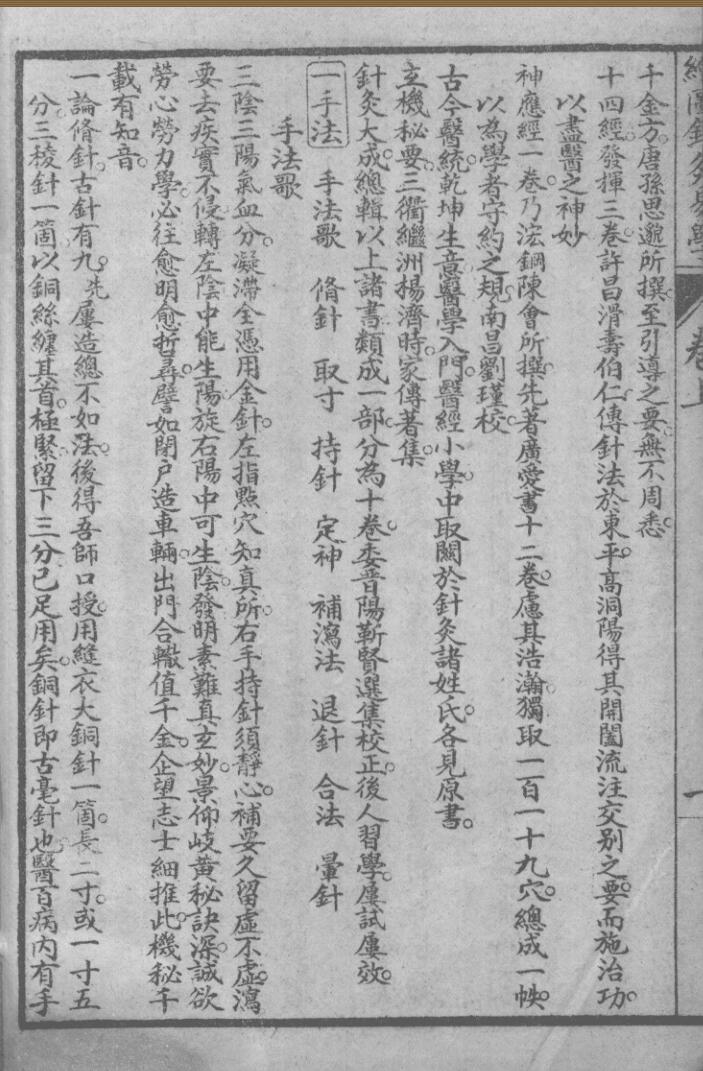 繪圖針灸易學
卷上
一
千金方。唐孫思邈所撰。至引導之要。無不周悉。
十四經發揮三卷。許昌滑壽伯仁。傳針法於東平。高洞陽得其開闔流注交別之要。而施治功。
以盡醫之神妙
神應經一卷。乃浤鋼陳會所撰。先著廣愛書十二卷。慮其浩瀚。獨取一百一十九穴。總成一帙。
以為學者守約之規。南昌劉瑾校。
古今醫統。乾坤生意。醫學入門。醫經小學。中取關於針灸諸姓氏。各見原書。
玄機秘要。三衢繼洲楊濟時。家傳著集。
針灸大成。總輯以上諸書。類成一部。分為十卷。委晋陽靳賢選集校正。後人習學。屢試屢效。
一手法 手法歌 脩針 取寸 持針 定神 補瀉法 退針 合法 暈針
手法歌
三陰三陽氣血分。凝滯全憑用金針。左指點穴知真所。右手持針須靜心。補要久留虛不虛。瀉
要去疾實不侵。轉左陰中能生陽。旋右陽中可生陰。發明素難真玄妙。景仰岐黃秘訣深。誠欲
勞心勞力學。必往愈明愈折尋。譬如閉戶造車輛。出門合轍值千金。企望志士細推此。機秘千
載有知音。
一論脩針。古針有九。先屢造總不如法。後得吾師口授。用縫衣大銅針一箇。長二寸。或一寸五
分。三棱針一箇。以銅絲纏其首。極緊。留下三分。已足用矣。銅針即古毫針也。醫百病內有手